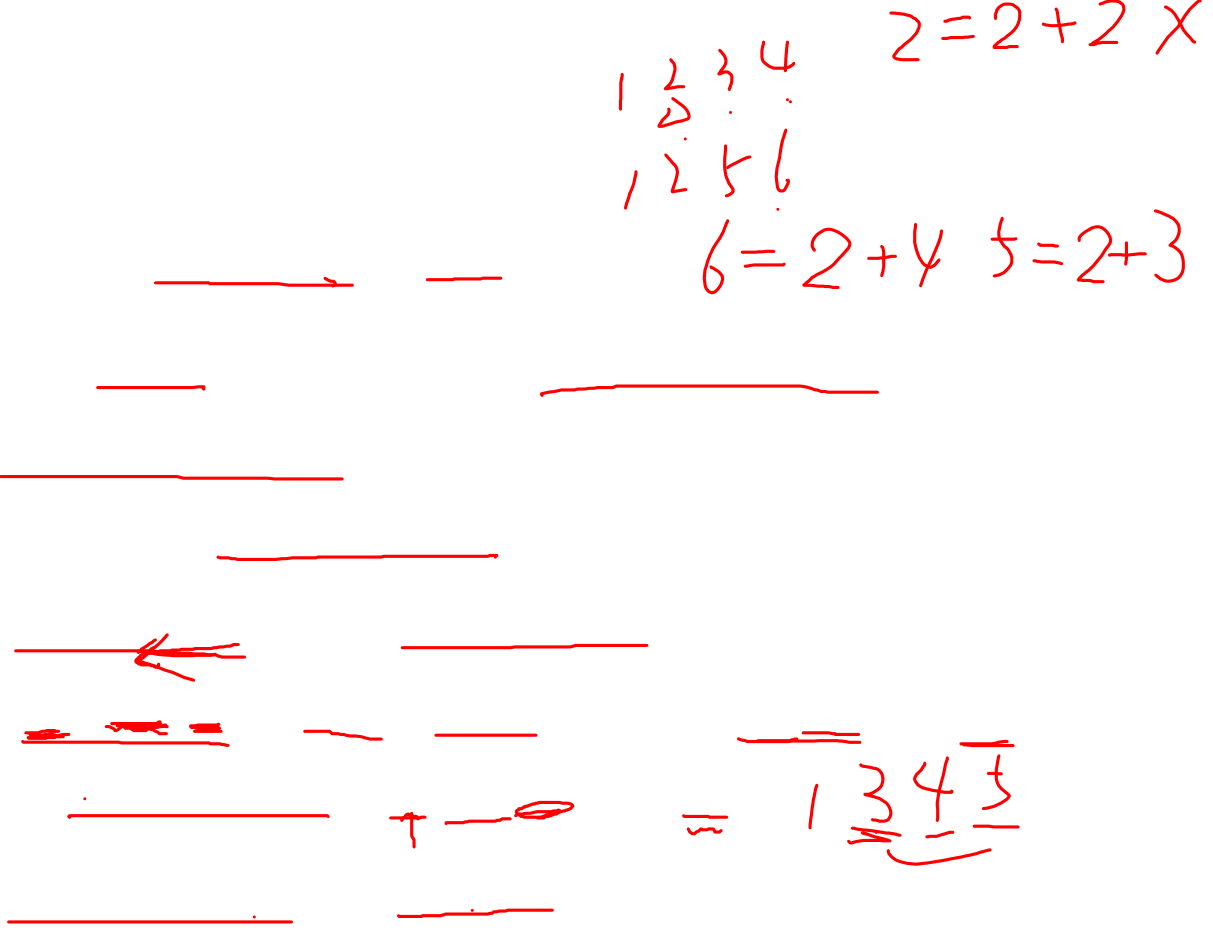 2=2+2 X
1 2 3 4
2
1 2 5 6
6=2+4 5=2+3
1 3 4 5